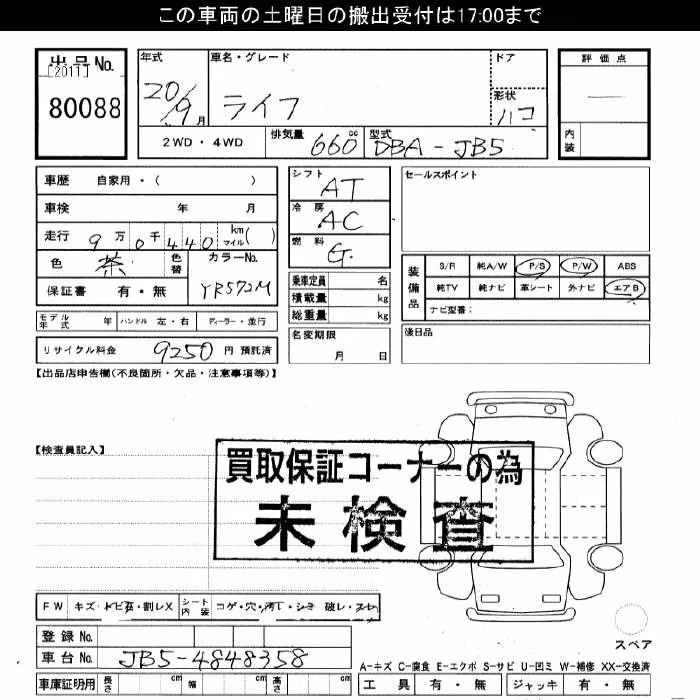 この車両の土曜日の搬出受付は17:00まで
出品No.
[2011]
80088
年式 20/9月
車名・グレード ライフ
ドア
形状 ハコ
2WD・4WD
排気量 660cc
型式 DBA-JB5
評価点
内装
車歴 自家用・( )
車検 年 月
走行 9万0千440 km マイル( )
色 茶 色替 カラーNo. YR572M
保証書 有・無
モデル年式 年 ハンドル 左・右 ディーラー・並行
リサイクル料金 9250円 預託済
シフト AT
冷房 AC
燃料 G.
乗車定員 名
積載量 kg
総重量 kg
名変期限 月 日
セールスポイント
装備品
S/R 純A/W P/S P/W ABS
純TV 純ナビ 革シート 外ナビ エアB
ナビ型番:
後日品
【出品店申告欄(不良箇所・欠品・注意事項等)】
【検査員記入】
買取保証コーナーの為
未検査
FW キズ・トビ石・割レX シート内装 コゲ・穴・汚レ・シミ 破レ・スレ
登録No.
車台No. JB5-4848358
車庫証明用 長さ cm 幅 cm 高さ cm
スペア
A-キズ C-腐食 E-エクボ S-サビ U-凹ミ W-補修 XX-交換済
工具 有・無 ジャッキ 有・無